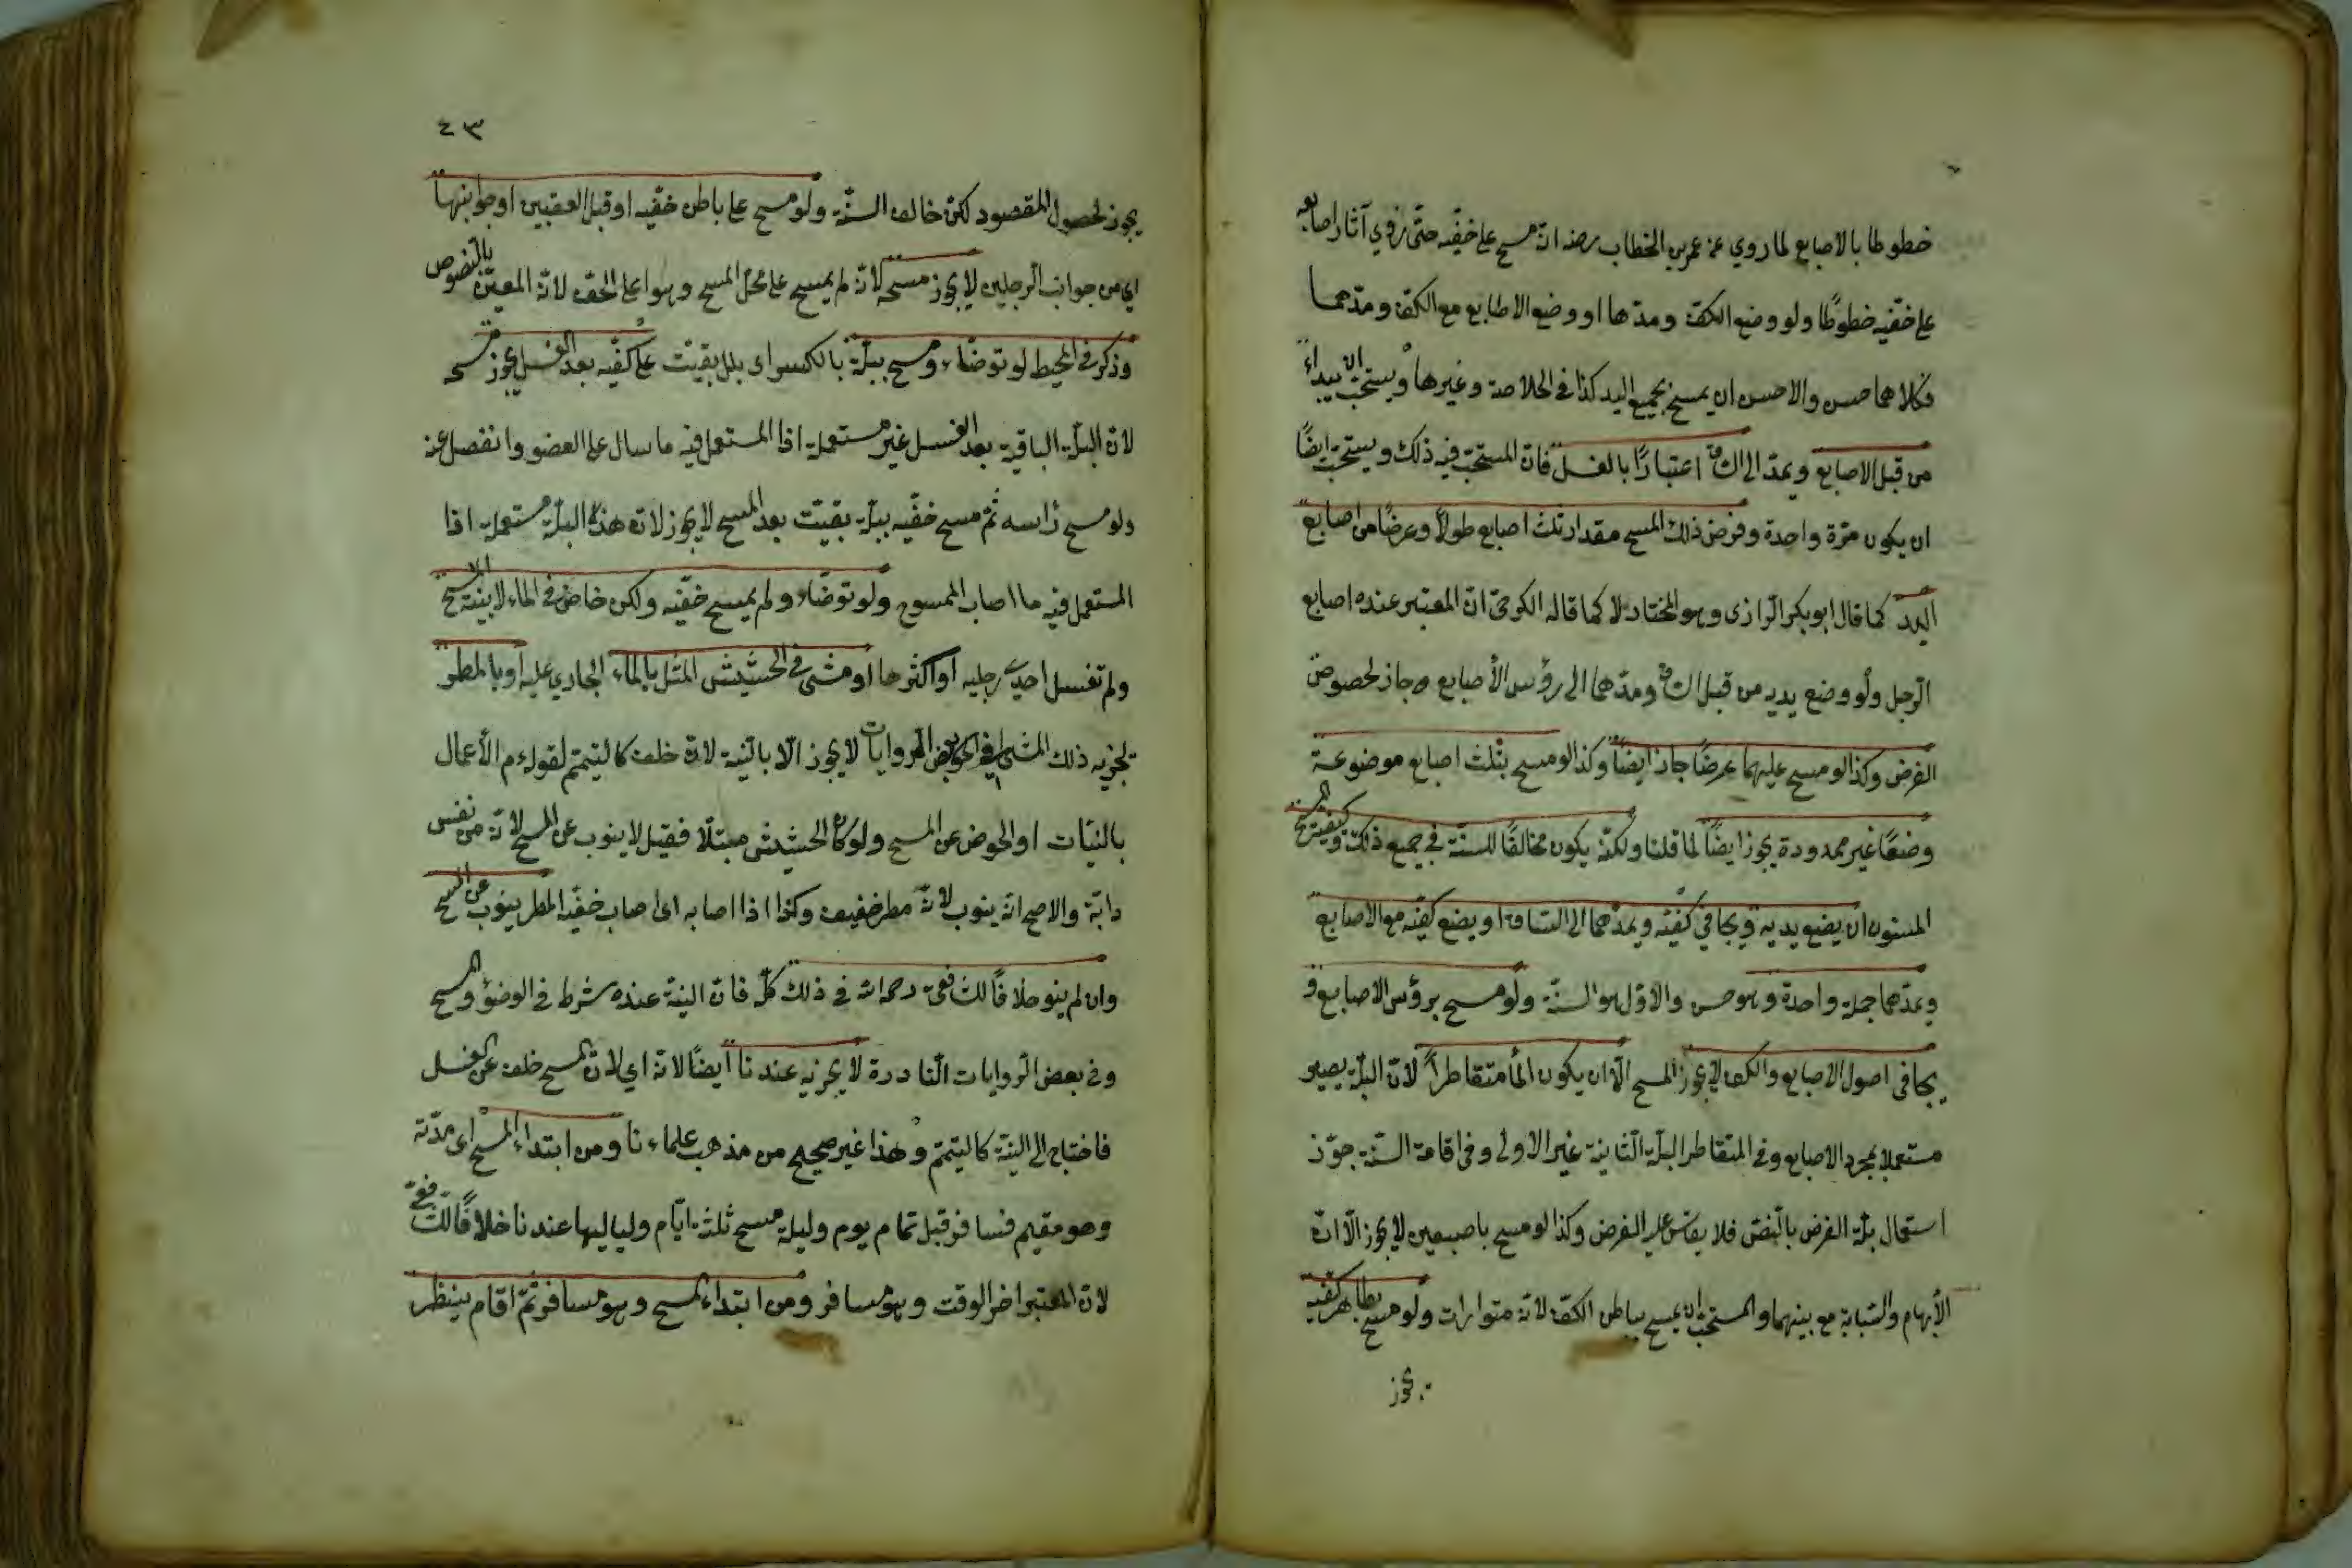 خطوطا بالاصابع لما روي عن عمر بن الخطاب رضه انه مسح على خفيه حتى رؤي آثار اصابعه
على خفيه خطوطًا ولو وضع الكف ومدها او وضع الاصابع مع الكف ومدهما
فكلاهما حسن والاحسن ان يمسح بجميع اليد كذا في الخلاصة وغيرها ويستحب ان يبداء
من قبل الاصابع ويمد الى الساق اعتبارًا بالغسل فان المستحب فيه ذلك ويستحب ايضًا
ان يكون مرّة واحدة وفرض ذلك المسح مقدار ثلث اصابع طولًا وعرضًا من اصابع
اليد كما قال ابو بكر الرازى وهو المختار لا كما قاله الكرخى ان المعتبر عنده اصابع
الرجل ولو وضع يديه من قبل الساق ومدهما الى رؤس الأصابع جاز لحصول
الفرض وكذا لو مسح عليهما عرضًا جاز ايضًا وكذا لو مسح بثلث اصابع موضوعة
وضعًا غير ممدودة يجوز ايضًا لما قلنا ولكنه يكون مخالفًا للسنة في جميع ذلك وكيفية المسح
المسنون ان يضع يديه ويجافي كفيه ويمدهما الى الساق او يضع كفيه مع الاصابع
ويمدهما جملة واحدة وهو حسن والاول هو السنة ولو مسح برؤس الاصابع و
يجافى اصول الاصابع والكف لا يجوز المسح الا ان يكون الماء متقاطرًا لان البلة يصير
مستعملا بمجرد الاصابع وفي المتقاطر البلة الثانية غير الاولى وفى اقامة السنة جوز
استعمال بلة الفرض بالنص فلا يقاس عليه الفرض وكذا لو مسح باصبعين لا يجوز الا ان
الأبهام والسبابة مع بينهما والمستحب ان يمسح بباطن الكف لانه متوارث ولو مسح بظاهر كفيه
يجوز
٤٣
يجوز لحصول المقصود لكن خالف السنة ولو مسح على باطن خفيه او قبل العقبين او جوانبها
اي من جوانب الرجلين لا يجوز مسحه لانه لم يمسح على محل المسح وهو اعلى الخف لانه المعين بالنصوص
وذكر في المحيط لو توضاء ومسح ببلة بالكسر اى بلل بقيت على كفيه بعد الغسل يجوز مسحه
لان البلة الباقية بعد الغسل غير مستعملة اذا المستعمل فيه ما سال على العضو وانفصل عنه
ولو مسح رأسه ثم مسح خفيه ببلة بقيت بعد المسح لا يجوز لان هذه البلة مستعملة اذا
المستعمل فيه ما اصاب الممسوح ولو توضاء ولم يمسح خفيه ولكن خاض في الماء لا بنية المسح
ولم تغسل احدى رجليه او اكثرها او مشى في الحشيش المبتل بالماء الجاري عليه او بالمطر
تجزيه ذلك المشى في بعض الروايات لا يجوز الا بالنية لانه خلف كالتيمم لقوله م الأعمال
بالنيات او الخوض عن المسح ولو كان الحشيش مبتلا فقيل لا ينوب عن المسح لانه من نفس
دابة والاصح انه ينوب لانه مطر خفيف وكذا اذا اصابه اى اصاب خفيه المطر ينوب عن المسح
وان لم ينو خلافًا للشافعى رحمه الله في ذلك كله فان النية عنده شرط في الوضؤ والمسح
وفي بعض الروايات النادرة لا يجزيه عندنا ايضًا لانه اي لان المسح خلف عن الغسل
فاحتاج الى النية كالتيمم وهذا غير صحيح من مذهب علماءنا ومن ابتداء المسح اى مدته
وهو مقيم فسافر قبل تمام يوم وليلة مسح ثلثة ايام ولياليها عندنا خلافًا للشافعى
لان المعتبر اخر الوقت وهو مسافر ومن ابتداء المسح وهو مسافر ثم اقام ينظر